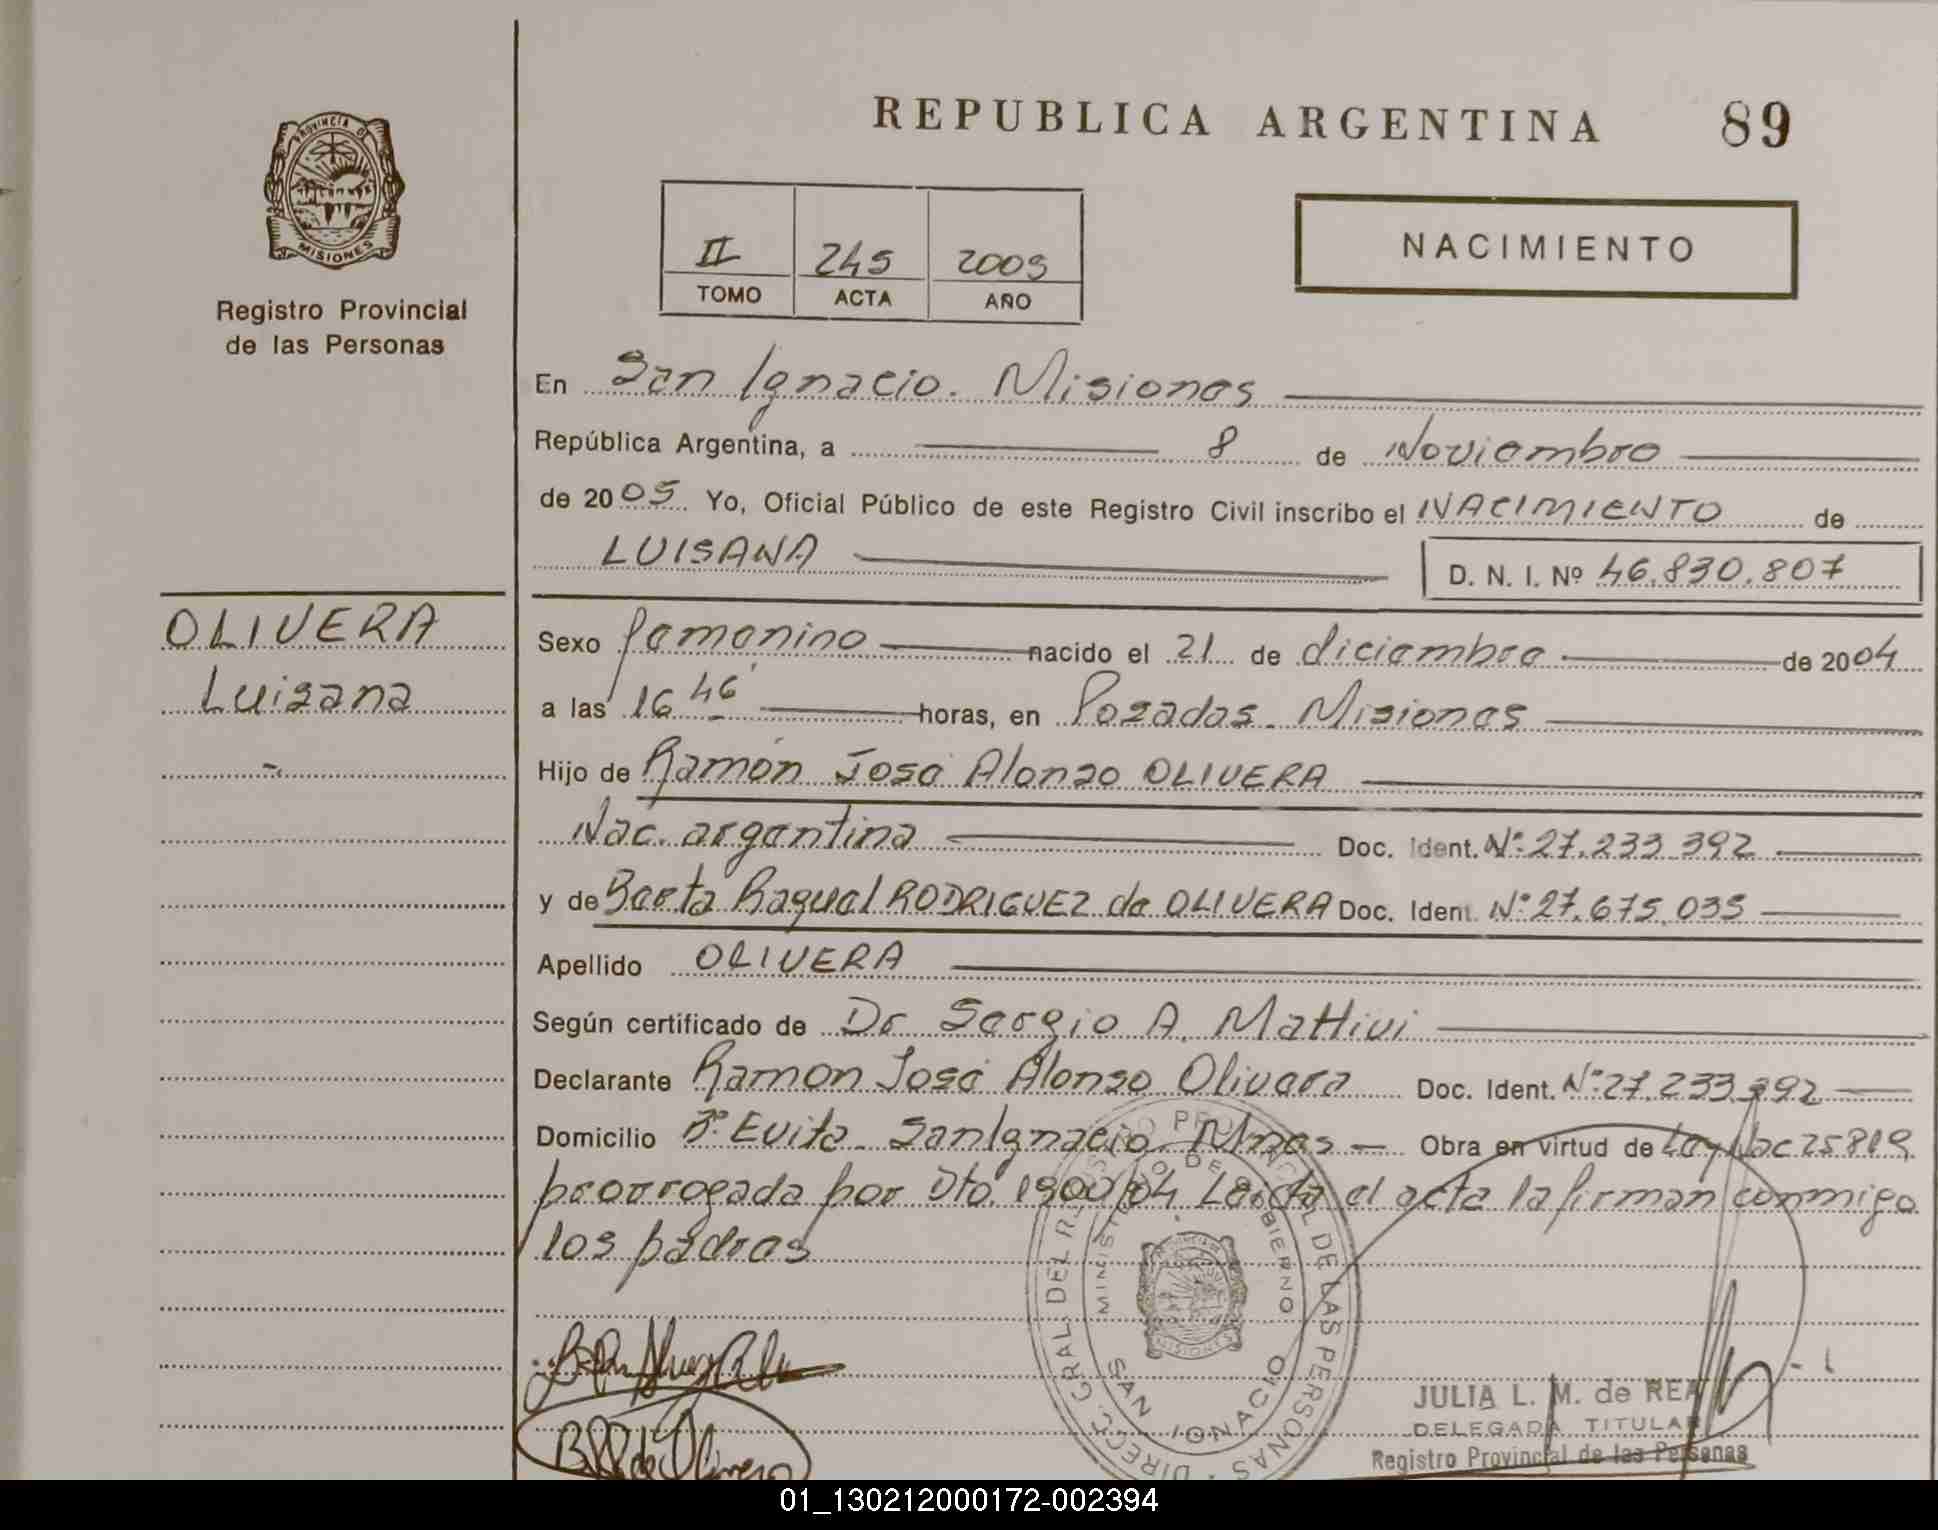 REPUBLICA ARGENTINA 89
PROVINCIA DE
MISIONES
Registro Provincial
de las Personas
II 245 2005
TOMO ACTA AÑO
NACIMIENTO
En San Ignacio. Misiones
República Argentina, a 8 de Noviembre
de 2005 Yo, Oficial Público de este Registro Civil inscribo el NACIMIENTO de
LUISANA D. N. I. Nº 46.830.807
OLIVERA
Luisana
Sexo femenino nacido el 21 de diciembre de 2004
a las 16 46' horas, en Posadas. Misiones
Hijo de Ramón José Alonso OLIVERA
Nac. argentina Doc. Ident. Nº 27.233.392
y de Berta Raquel RODRIGUEZ de OLIVERA Doc. Ident. Nº 27.675.035
Apellido OLIVERA
Según certificado de Dr Sergio A. Mattivi
Declarante Ramon José Alonso Olivera Doc. Ident. Nº 27.233.392
Domicilio Bº Evita San Ignacio Mnes Obra en virtud de Ley Nac 25819
prorrogada por Dto. 1900/04 Leida el acta la firman conmigo
los padres
DIRECC. GRAL. DEL REGISTRO PROVINCIAL DE LAS PERSONAS
MINISTERIO DE GOBIERNO
SAN IGNACIO
MISIONES
B R de Olivera
JULIA L. M. de REA
DELEGADA TITULAR
Registro Provincial de las Personas
01_130212000172-002394